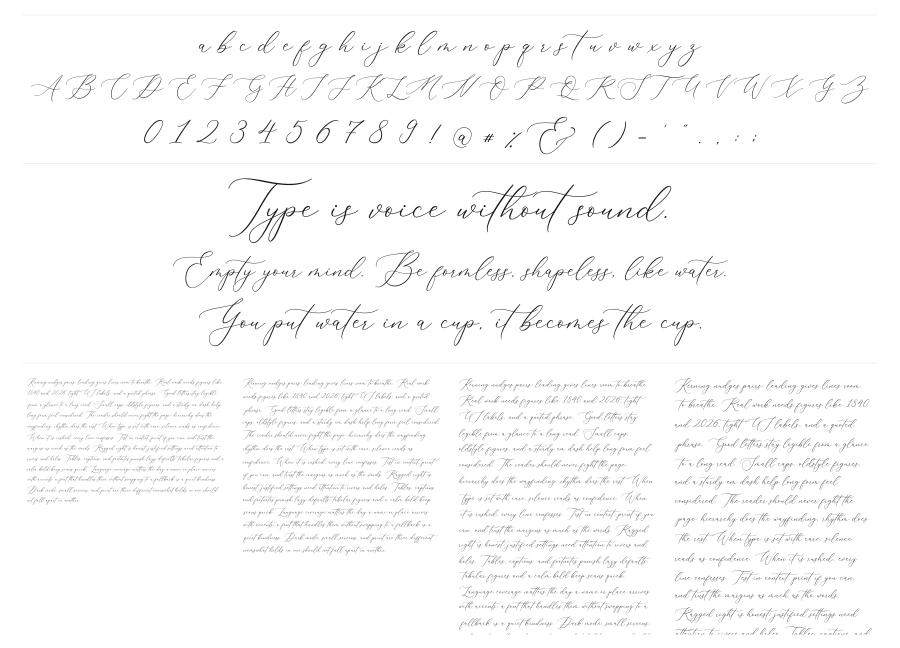 a b c d e f g h i j k l m n o p q r s t u v w x y z
A B C D E F G H I J K L M N O P Q R S T U V W X Y Z
0 1 2 3 4 5 6 7 8 9 ! @ # % & ( ) - ' " . , : ;
Type is voice without sound.
Empty your mind. Be formless, shapeless, like water.
You put water in a cup, it becomes the cup.
Kerning nudges pairs, leading gives lines room to breathe. Real work needs figures like
1840 and 2026, tight WJ labels, and a quoted phrase. Good letters stay legible
from a glance to a long read. Small caps, oldstyle figures, and a sturdy em dash help
long form feel considered. The reader should never fight the page: hierarchy does the
wayfinding, rhythm does the rest. When type is set with care, silence reads as confidence.
When it is rushed, every line confesses. Test in context: print if you can, and trust the
margins as much as the words. Ragged right is honest; justified settings need attention to
rivers and holes. Tables, captions, and footnotes punish lazy defaults; tabular figures and a
calm bold keep scans quick. Language coverage matters the day a name or place arrives
with accents; a font that handles them without swapping to a fallback is a quiet kindness.
Dark mode, small screens, and print are three different
Kerning nudges pairs, leading gives lines room to breathe. Real work
needs figures like 1840 and 2026, tight WJ labels, and a quoted
phrase. Good letters stay legible from a glance to a long read. Small
caps, oldstyle figures, and a sturdy em dash help long form feel considered.
The reader should never fight the page: hierarchy does the wayfinding,
rhythm does the rest. When type is set with care, silence reads as
confidence. When it is rushed, every line confesses. Test in context: print
if you can, and trust the margins as much as the words. Ragged right is
honest; justified settings need attention to rivers and holes. Tables, captions,
and footnotes punish lazy defaults; tabular figures and a calm bold keep
scans quick. Language coverage matters the day a name or place arrives
with accents; a font that handles them without swapping to a fallback is a
quiet kindness. Dark mode, small screens, and print are three different
Kerning nudges pairs, leading gives lines room to breathe.
Real work needs figures like 1840 and 2026, tight
WJ labels, and a quoted phrase. Good letters stay
legible from a glance to a long read. Small caps,
oldstyle figures, and a sturdy em dash help long form feel
considered. The reader should never fight the page:
hierarchy does the wayfinding, rhythm does the rest. When
type is set with care, silence reads as confidence. When
it is rushed, every line confesses. Test in context: print if you
can, and trust the margins as much as the words. Ragged
right is honest; justified settings need attention to rivers and
holes. Tables, captions, and footnotes punish lazy defaults;
tabular figures and a calm bold keep scans quick.
Language coverage matters the day a name or place arrives
with accents; a font that handles them without swapping to a
fallback is a quiet kindness. Dark mode, small screens,
Kerning nudges pairs, leading gives lines room
to breathe. Real work needs figures like 1840
and 2026, tight WJ labels, and a quoted
phrase. Good letters stay legible from a glance
to a long read. Small caps, oldstyle figures,
and a sturdy em dash help long form feel
considered. The reader should never fight the
page: hierarchy does the wayfinding, rhythm does
the rest. When type is set with care, silence
reads as confidence. When it is rushed, every
line confesses. Test in context: print if you can,
and trust the margins as much as the words.
Ragged right is honest; justified settings need
attention to rivers and holes. Tables, captions, and